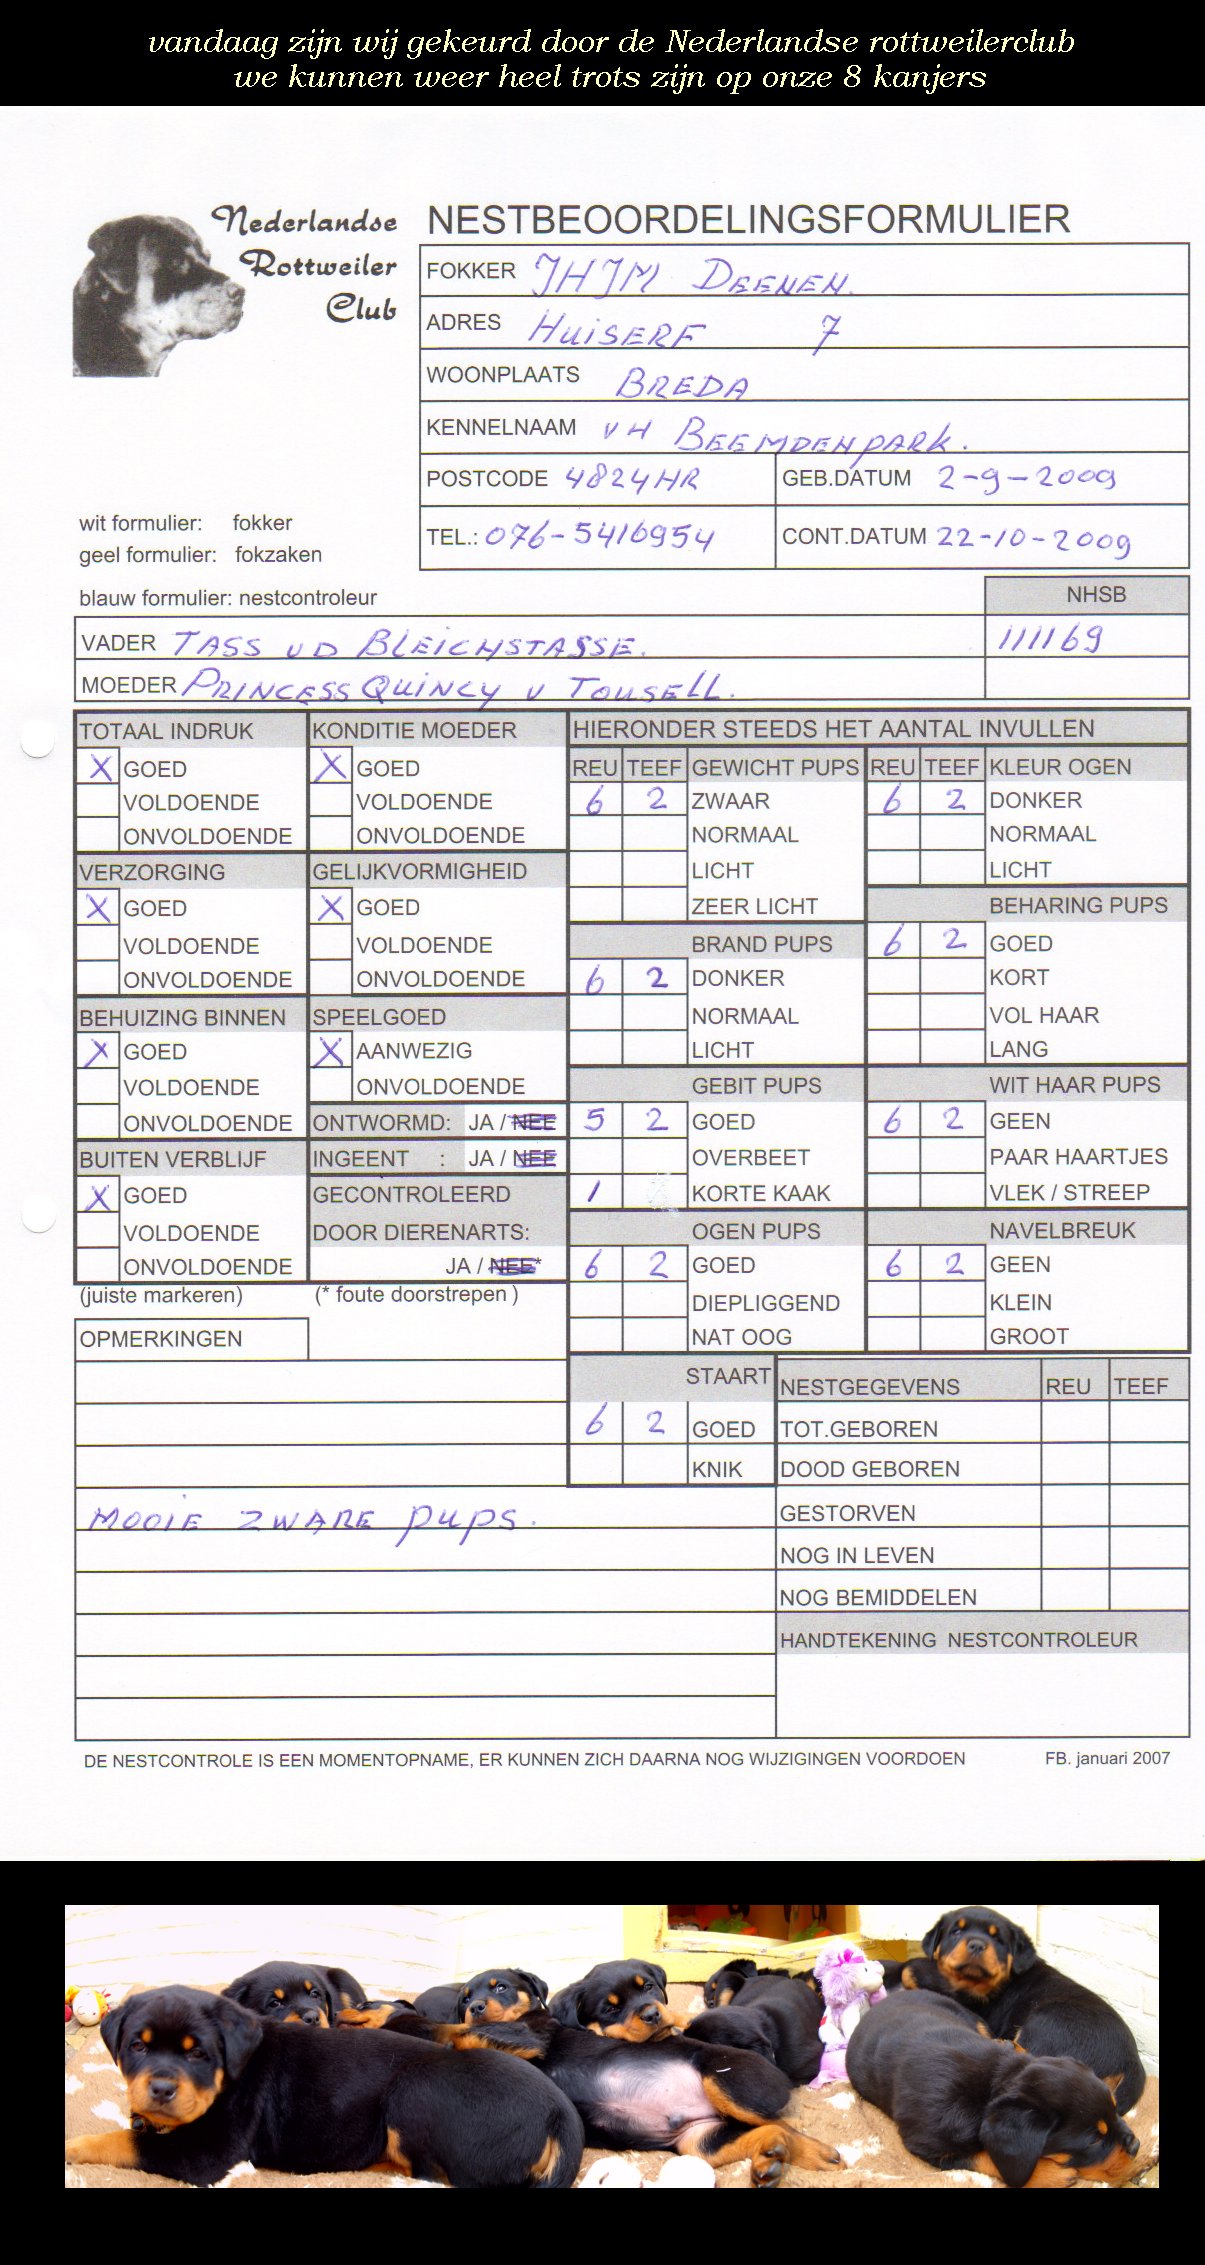 vandaag zijn wij gekeurd door de Nederlandse rottweilerclub
we kunnen weer heel trots zijn op onze 8 kanjers
Nederlandse
Rottweiler
Club
NESTBEOORDELINGSFORMULIER
FOKKER JHJM DEENEN.
ADRES HUISERF 7
WOONPLAATS BREDA
KENNELNAAM VH BEEMDENPARK.
POSTCODE 4824HR GEB.DATUM 2-9-2009
TEL.: 076-5416954 CONT.DATUM 22-10-2009
wit formulier: fokker
geel formulier: fokzaken
blauw formulier: nestcontroleur
NHSB
VADER TASS VD BLEICHSTASSE. 111169
MOEDER PRINCESS QUINCY V TOUSELL.
TOTAAL INDRUK
X GOED
VOLDOENDE
ONVOLDOENDE
VERZORGING
X GOED
VOLDOENDE
ONVOLDOENDE
BEHUIZING BINNEN
X GOED
VOLDOENDE
ONVOLDOENDE
BUITEN VERBLIJF
X GOED
VOLDOENDE
ONVOLDOENDE
(juiste markeren)
KONDITIE MOEDER
X GOED
VOLDOENDE
ONVOLDOENDE
GELIJKVORMIGHEID
X GOED
VOLDOENDE
ONVOLDOENDE
SPEELGOED
X AANWEZIG
ONVOLDOENDE
ONTWORMD: JA / NEE
INGEENT : JA / NEE
GECONTROLEERD
DOOR DIERENARTS:
JA / NEE*
(* foute doorstrepen )
HIERONDER STEEDS HET AANTAL INVULLEN
REU TEEF GEWICHT PUPS
6 2 ZWAAR
NORMAAL
LICHT
ZEER LICHT
BRAND PUPS
6 2 DONKER
NORMAAL
LICHT
GEBIT PUPS
5 2 GOED
OVERBEET
1 KORTE KAAK
OGEN PUPS
6 2 GOED
DIEPLIGGEND
NAT OOG
STAART
6 2 GOED
KNIK
REU TEEF KLEUR OGEN
6 2 DONKER
NORMAAL
LICHT
BEHARING PUPS
6 2 GOED
KORT
VOL HAAR
LANG
WIT HAAR PUPS
6 2 GEEN
PAAR HAARTJES
VLEK / STREEP
NAVELBREUK
6 2 GEEN
KLEIN
GROOT
OPMERKINGEN
MOOIE ZWARE PUPS.
NESTGEGEVENS REU TEEF
TOT.GEBOREN
DOOD GEBOREN
GESTORVEN
NOG IN LEVEN
NOG BEMIDDELEN
HANDTEKENING NESTCONTROLEUR
DE NESTCONTROLE IS EEN MOMENTOPNAME, ER KUNNEN ZICH DAARNA NOG WIJZIGINGEN VOORDOEN FB. januari 2007